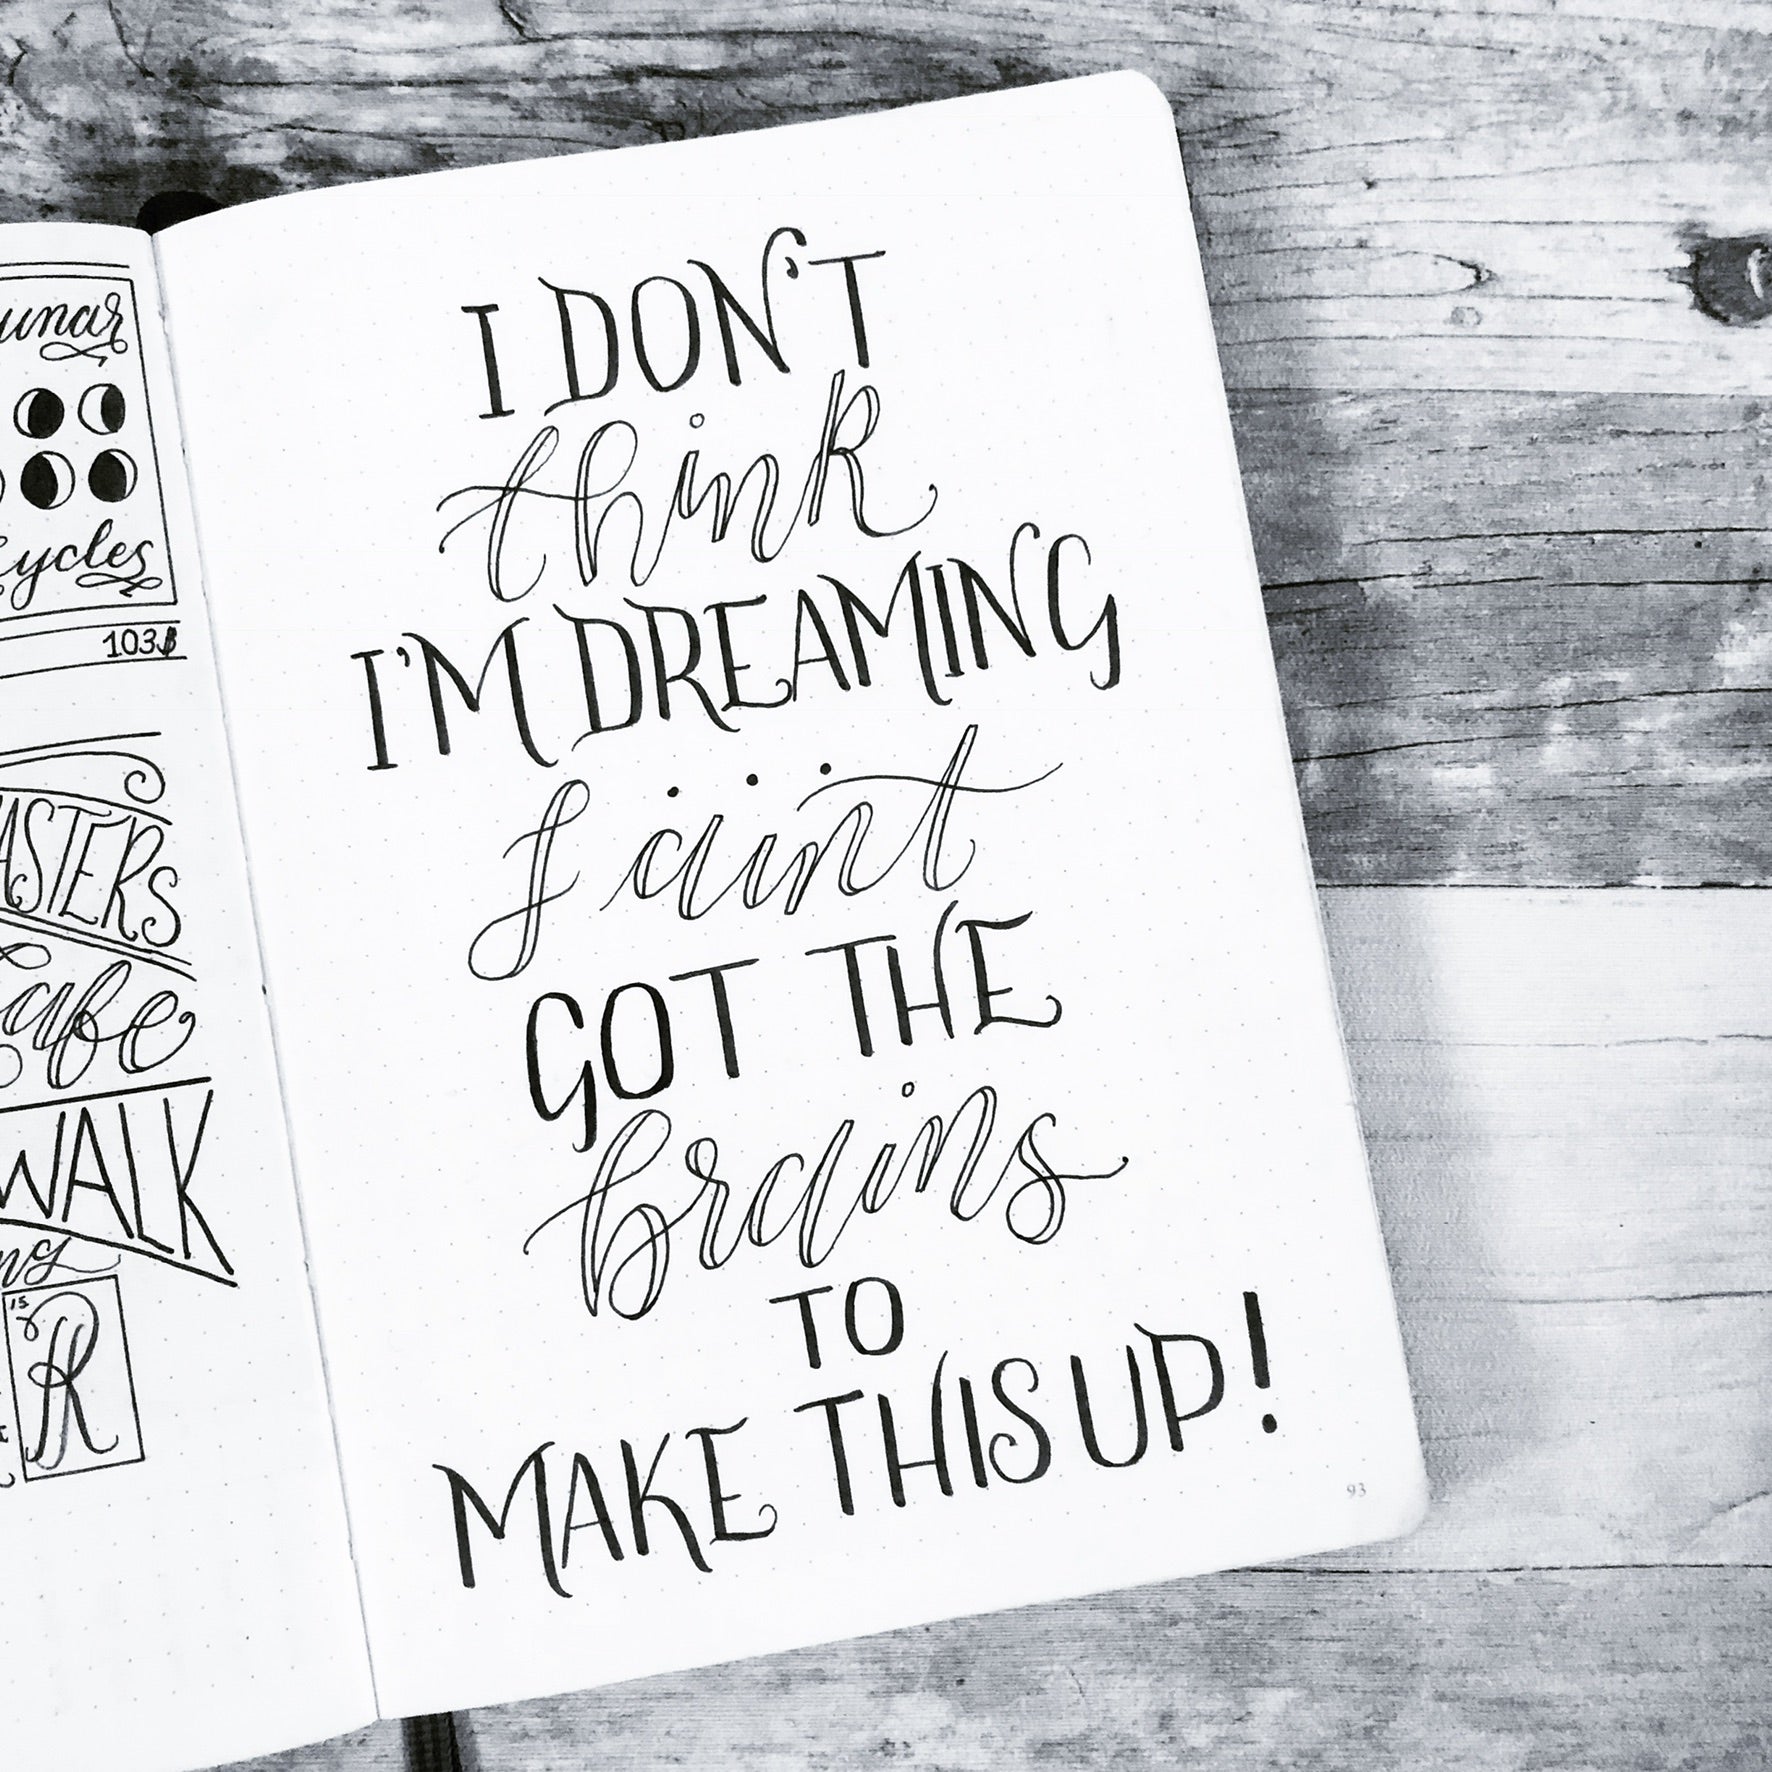 unar
ycles
103
ASTERS
afe
WALK
ng
15
R
I DON'T
think
I'M DREAMING
I aint
GOT THE
brains
TO
MAKE THIS UP!
93